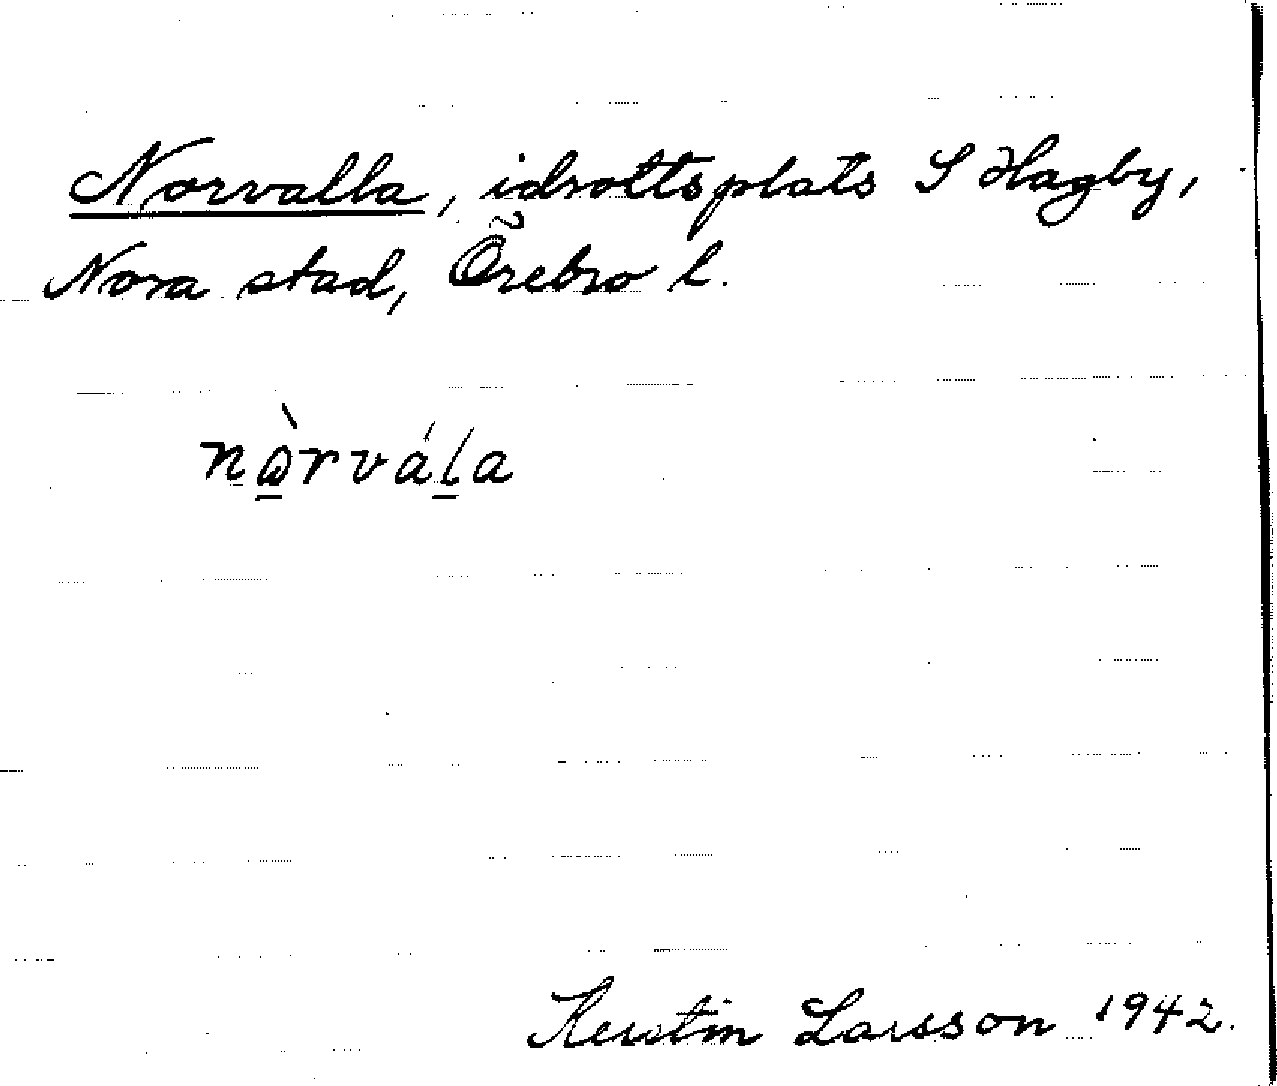 Norvalla, idrottsplats S Hagby,
Nora stad, Örebro l.
nòrvála
Kerstin Larsson 1942.